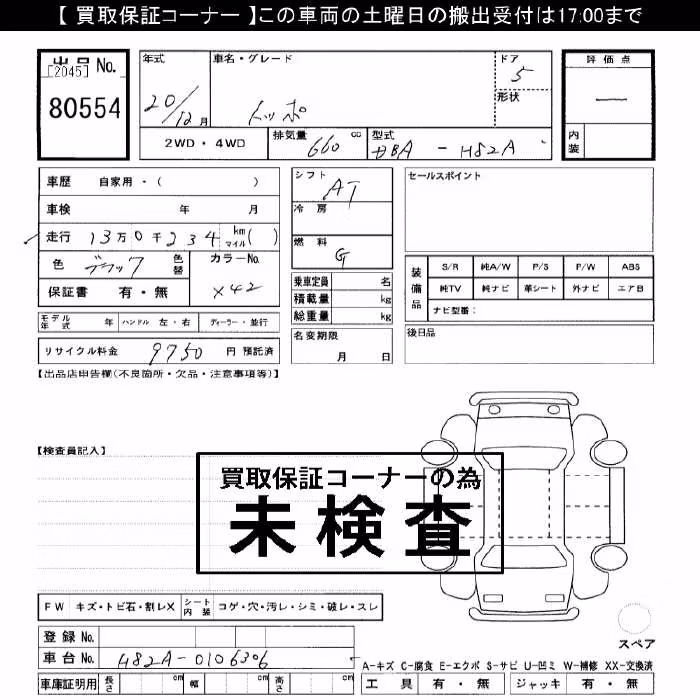 【 買取保証コーナー 】この車両の土曜日の搬出受付は17:00まで
出品 No.
[2045]
80554
年式
20/12 月
車名・グレード
トッポ
ドア
5
形状
評価点
―
内装
2WD・4WD
排気量 660 cc
型式 DBA - H82A
車歴 自家用・( )
車検 年 月
走行 13万0千234 km マイル ( )
色 ブラック 色替
カラーNo.
X42
保証書 有・無
モデル年式 年 ハンドル 左・右 ディーラー・並行
リサイクル料金 9750 円 預託済
シフト
AT
冷房
燃料
G
乗車定員 名
積載量 kg
総重量 kg
名変期限
月 日
セールスポイント
装備品
S/R 純A/W P/S P/W ABS
純TV 純ナビ 革シート 外ナビ エアB
ナビ型番:
後日品
【出品店申告欄(不良箇所・欠品・注意事項等)】
【検査員記入】
買取保証コーナーの為
未検査
FW キズ・トビ石・割レX シート内装 コゲ・穴・汚レ・シミ・破レ・スレ
スペア
登録 No.
車台 No. H82A-0106306
A-キズ C-腐食 E-エクボ S-サビ U-凹ミ W-補修 XX-交換済
車庫証明用 長さ cm 幅 cm 高さ cm
工具 有・無 ジャッキ 有・無